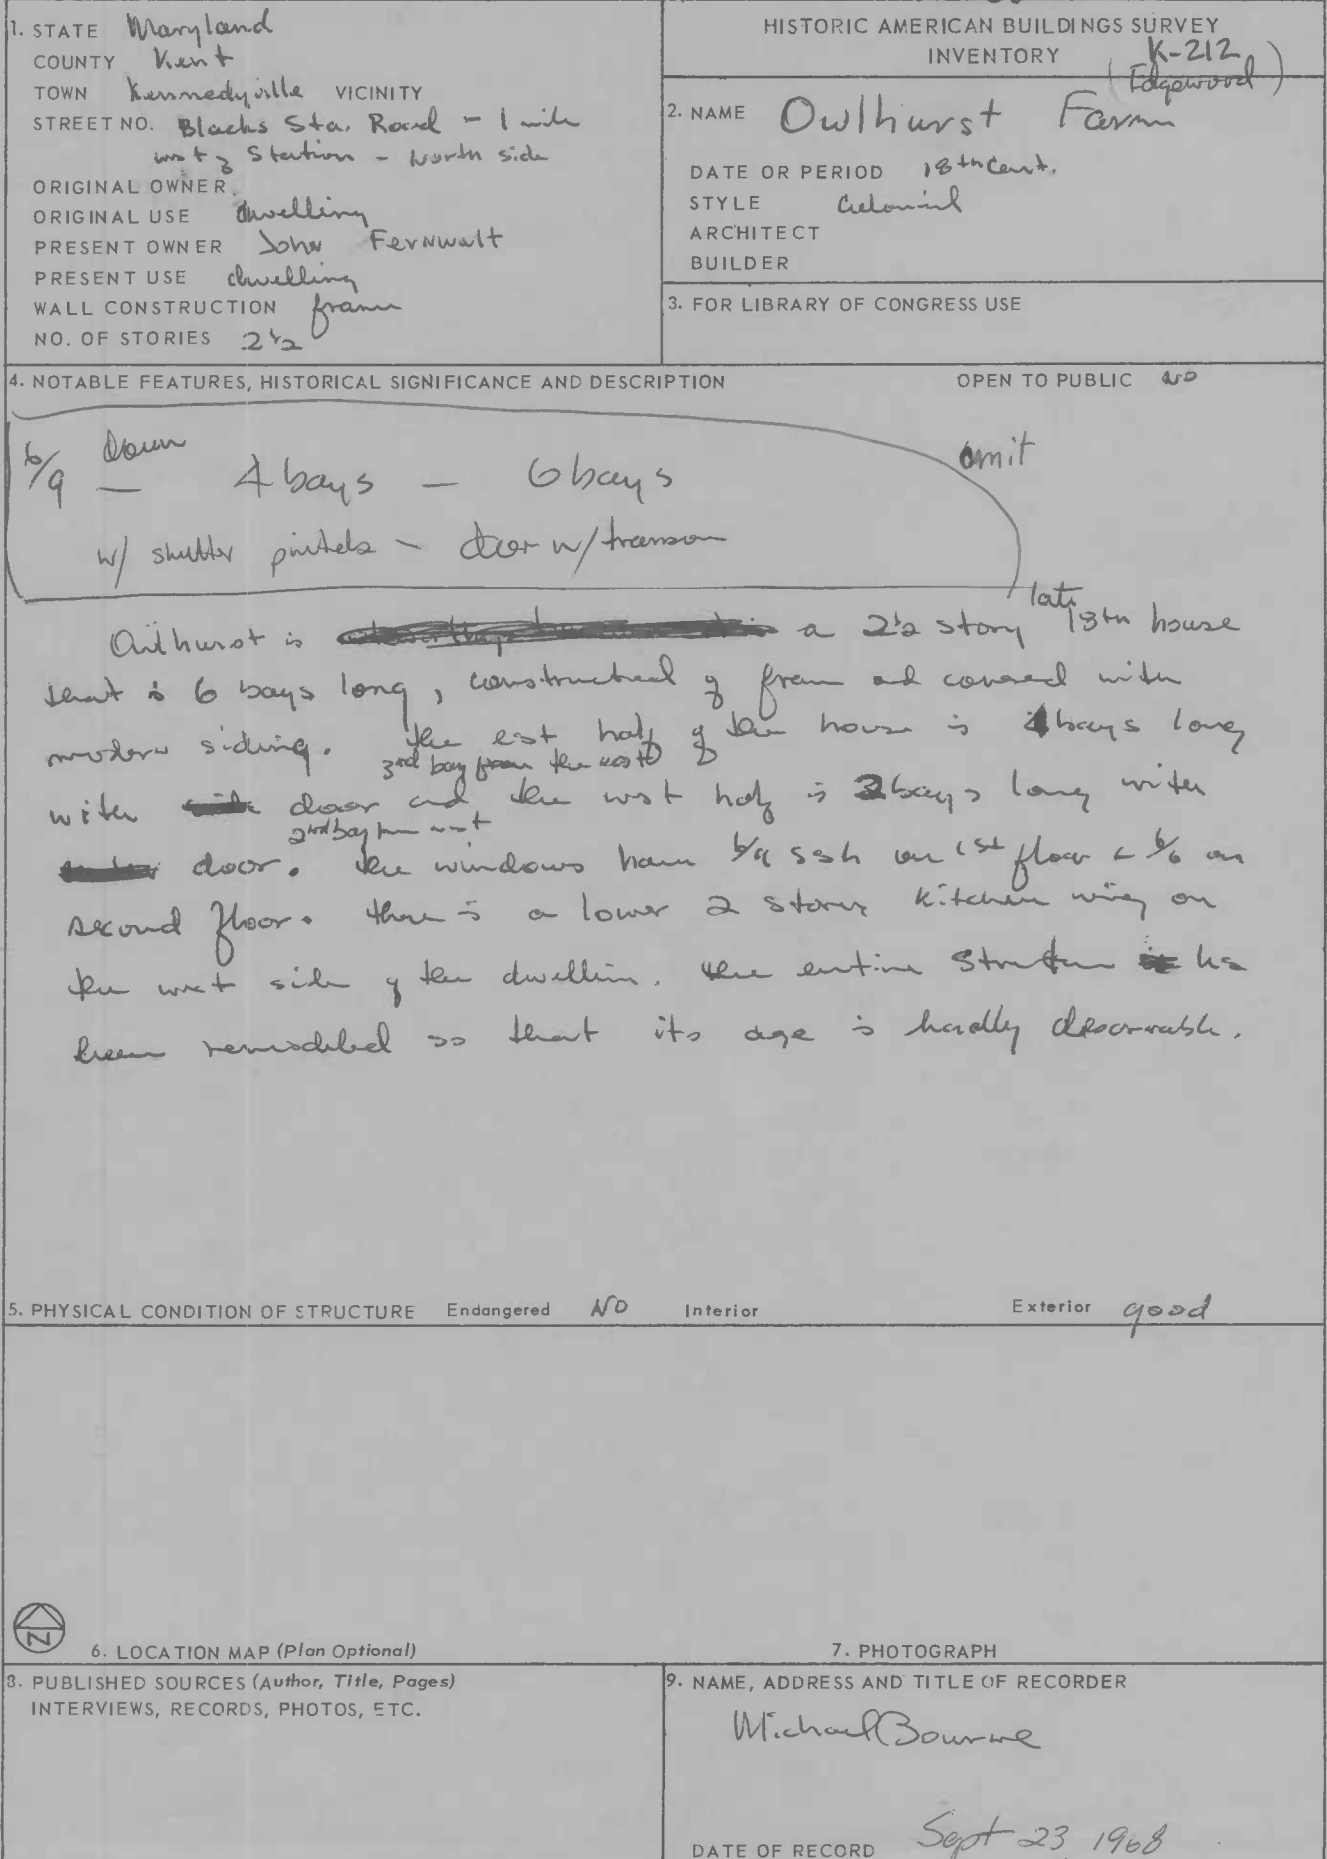 1. STATE Maryland
COUNTY Kent
TOWN Kennedyville VICINITY
STREET NO. Blacks Sta. Road - 1 mile
west of Station - North side
ORIGINAL OWNER
ORIGINAL USE dwelling
PRESENT OWNER John Fernwalt
PRESENT USE dwelling
WALL CONSTRUCTION frame
NO. OF STORIES 2 1/2
HISTORIC AMERICAN BUILDINGS SURVEY
INVENTORY K-212
(Edgewood)
2. NAME Owlhurst Farm
DATE OR PERIOD 18th Cent.
STYLE Colonial
ARCHITECT
BUILDER
3. FOR LIBRARY OF CONGRESS USE
4. NOTABLE FEATURES, HISTORICAL SIGNIFICANCE AND DESCRIPTION OPEN TO PUBLIC NO
6/9 down — 4 bays — 6 bays
omit
w/ shutter pintels - door w/ transom
late
Owlhurst is a 2 1/2 story 18th house
that is 6 bays long, constructed of frame and covered with
modern siding. The east half of the house is 4 bays long
3rd bay from the east
with door and the west half is 2 bays long with
2nd bay from west
door. The windows have 6/9 sash on 1st floor & 6/6 on
second floor. There is a lower 2 story kitchen wing on
the west side of the dwelling. The entire structure has
been remodeled so that its age is hardly
5. PHYSICAL CONDITION OF STRUCTURE Endangered NO Interior Exterior good
N
6. LOCATION MAP (Plan Optional)
7. PHOTOGRAPH
8. PUBLISHED SOURCES (Author, Title, Pages)
INTERVIEWS, RECORDS, PHOTOS, ETC.
9. NAME, ADDRESS AND TITLE OF RECORDER
Michael Bourne
DATE OF RECORD Sept 23, 1968